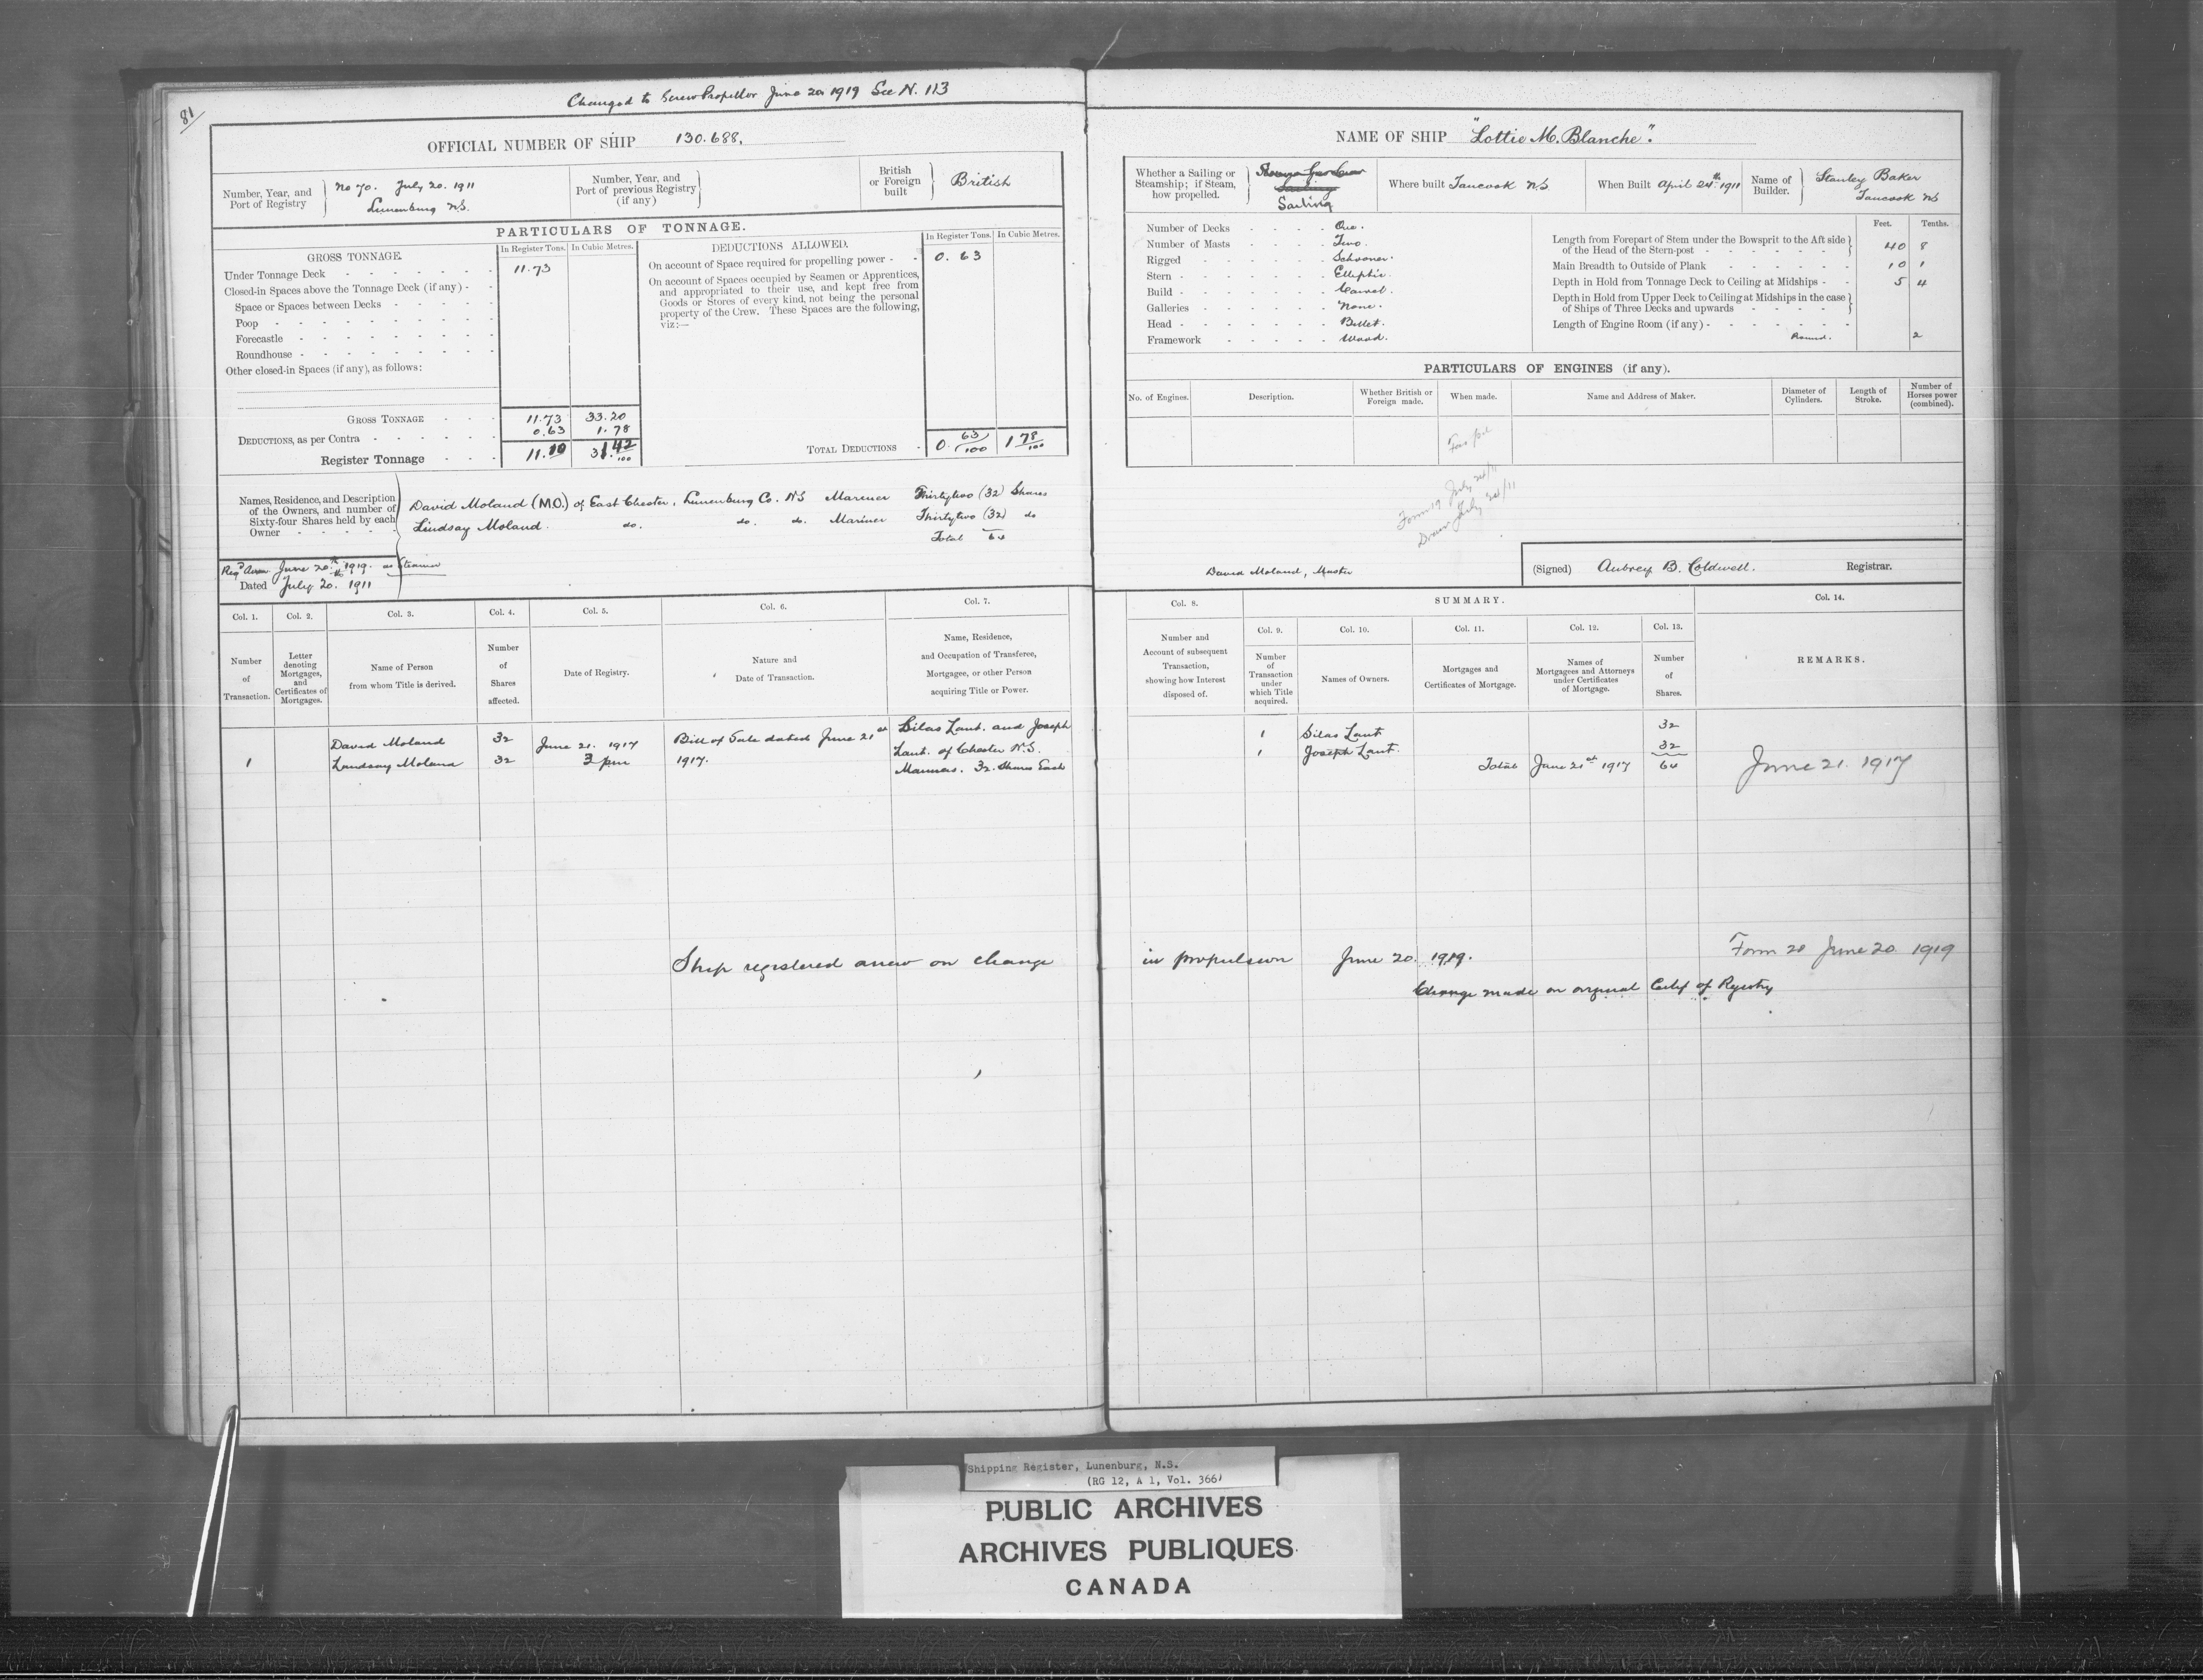 81
Changed to Screw Propellor June 20 1919 See N. 113
OFFICIAL NUMBER OF SHIP 130.688.
Number, Year, and
Port of Registry
No 70. July 20. 1911
Lunenburg N.S.
Number, Year, and
Port of previous Registry
(if any)
British
or Foreign
built
British
PARTICULARS OF TONNAGE.
GROSS TONNAGE.
In Register Tons. In Cubic Metres.
Under Tonnage Deck 11.73
Closed-in Spaces above the Tonnage Deck (if any)
Space or Spaces between Decks
Poop
Forecastle
Roundhouse
Other closed-in Spaces (if any), as follows:
GROSS TONNAGE 11.73 33.20
DEDUCTIONS, as per Contra 0.63 1.78
Register Tonnage 11.10 31.42/100
DEDUCTIONS ALLOWED.
In Register Tons. In Cubic Metres.
On account of Space required for propelling power 0.63
On account of Spaces occupied by Seamen or Apprentices,
and appropriated to their use, and kept free from
Goods or Stores of every kind, not being the personal
property of the Crew. These Spaces are the following,
viz:—
TOTAL DEDUCTIONS 0. 63/100 1 78/100
Names, Residence, and Description
of the Owners, and number of
Sixty-four Shares held by each
Owner
David Moland (M.O.) of East Chester, Lunenburg Co. NS Mariner Thirtytwo (32) Shares
Lindsay Moland. do. do. do. Mariner Thirtytwo (32) do
Total 64
Regd Anew June 20th 1919. as Steamer
Dated July 20.th 1911
Col. 1. Col. 2. Col. 3. Col. 4. Col. 5. Col. 6. Col. 7.
Number
of
Transaction.
Letter
denoting
Mortgages,
and
Certificates of
Mortgages.
Name of Person
from whom Title is derived.
Number
of
Shares
affected.
Date of Registry.
Nature and
Date of Transaction.
Name, Residence,
and Occupation of Transferee,
Mortgagee, or other Person
acquiring Title or Power.
1
David Moland
Lindsay Moland
32
32
June 21. 1917
3 pm
Bill of Sale dated June 21st
1917.
Silas Lant. and Joseph
Lant. of Chester N.S.
Mariners. 32. Shares Each
NAME OF SHIP "Lottie M. Blanche".
Whether a Sailing or
Steamship; if Steam,
how propelled.
Sailing
Sailing
Where built Tancook NS
When Built April 24th 1911
Name of
Builder.
Stanley Baker
Tancook NS
Number of Decks One.
Number of Masts Two.
Rigged Schooner.
Stern Elliptic.
Build Carvel.
Galleries None.
Head Billet.
Framework Wood.
Feet. Tenths.
Length from Forepart of Stem under the Bowsprit to the Aft side
of the Head of the Stern-post 40 8
Main Breadth to Outside of Plank 10 1
Depth in Hold from Tonnage Deck to Ceiling at Midships 5 4
Depth in Hold from Upper Deck to Ceiling at Midships in the case
of Ships of Three Decks and upwards
Length of Engine Room (if any)
Round. 2
PARTICULARS OF ENGINES (if any).
No. of Engines.
Description.
Whether British or
Foreign made.
When made.
Name and Address of Maker.
Diameter of
Cylinders.
Length of
Stroke.
Number of
Horses power
(combined).
Form 19 July 24/11
July 24/11
David Moland, Master
(Signed) Aubrey B. Coldwell. Registrar.
Col. 8.
SUMMARY.
Col. 14.
Col. 9. Col. 10. Col. 11. Col. 12. Col. 13.
Number and
Account of subsequent
Transaction,
showing how Interest
disposed of.
Number
of
Transaction
under
which Title
acquired.
Names of Owners.
Mortgages and
Certificates of Mortgage.
Names of
Mortgagees and Attorneys
under Certificates
of Mortgage.
Number
of
Shares.
REMARKS.
1 Silas Lant 32
1 Joseph Lant. 32
Total June 21st 1917 64
June 21. 1917
Ship registered anew on change in propulsion June 20. 1919.
Form 20 June 20 1919
Change made on original Certif of Registry
Shipping Register, Lunenburg, N.S.
(RG 12, A 1, Vol. 366)
PUBLIC ARCHIVES
ARCHIVES PUBLIQUES
CANADA